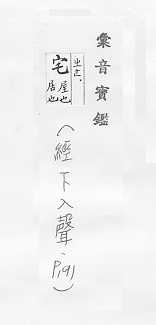 彙音寶鑑
宅屋也居也
(經下入聲,P.191)